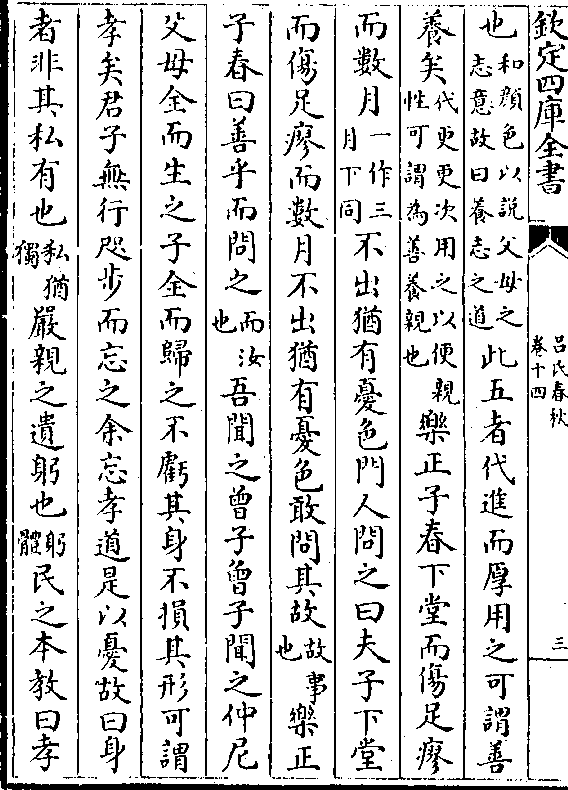 欽定四庫全書
呂氏春秋
卷十四
三
也和顔色以說父母之志意故曰養志之道此五者代進而厚用之可謂善
養矣代更更次用之以便親性可謂為善養親也樂正子春下堂而傷足瘳
而數月一作三月下同不出猶有憂色門人問之曰夫子下堂
而傷足瘳而數月不出猶有憂色敢問其故故事也樂正
子春曰善乎而問之而汝也吾聞之曾子曾子聞之仲尼
父母全而生之子全而歸之不虧其身不損其形可謂
孝矣君子無行咫步而忘之余忘孝道是以憂故曰身
者非其私有也私猶獨嚴親之遺躬也躬體民之本教曰孝